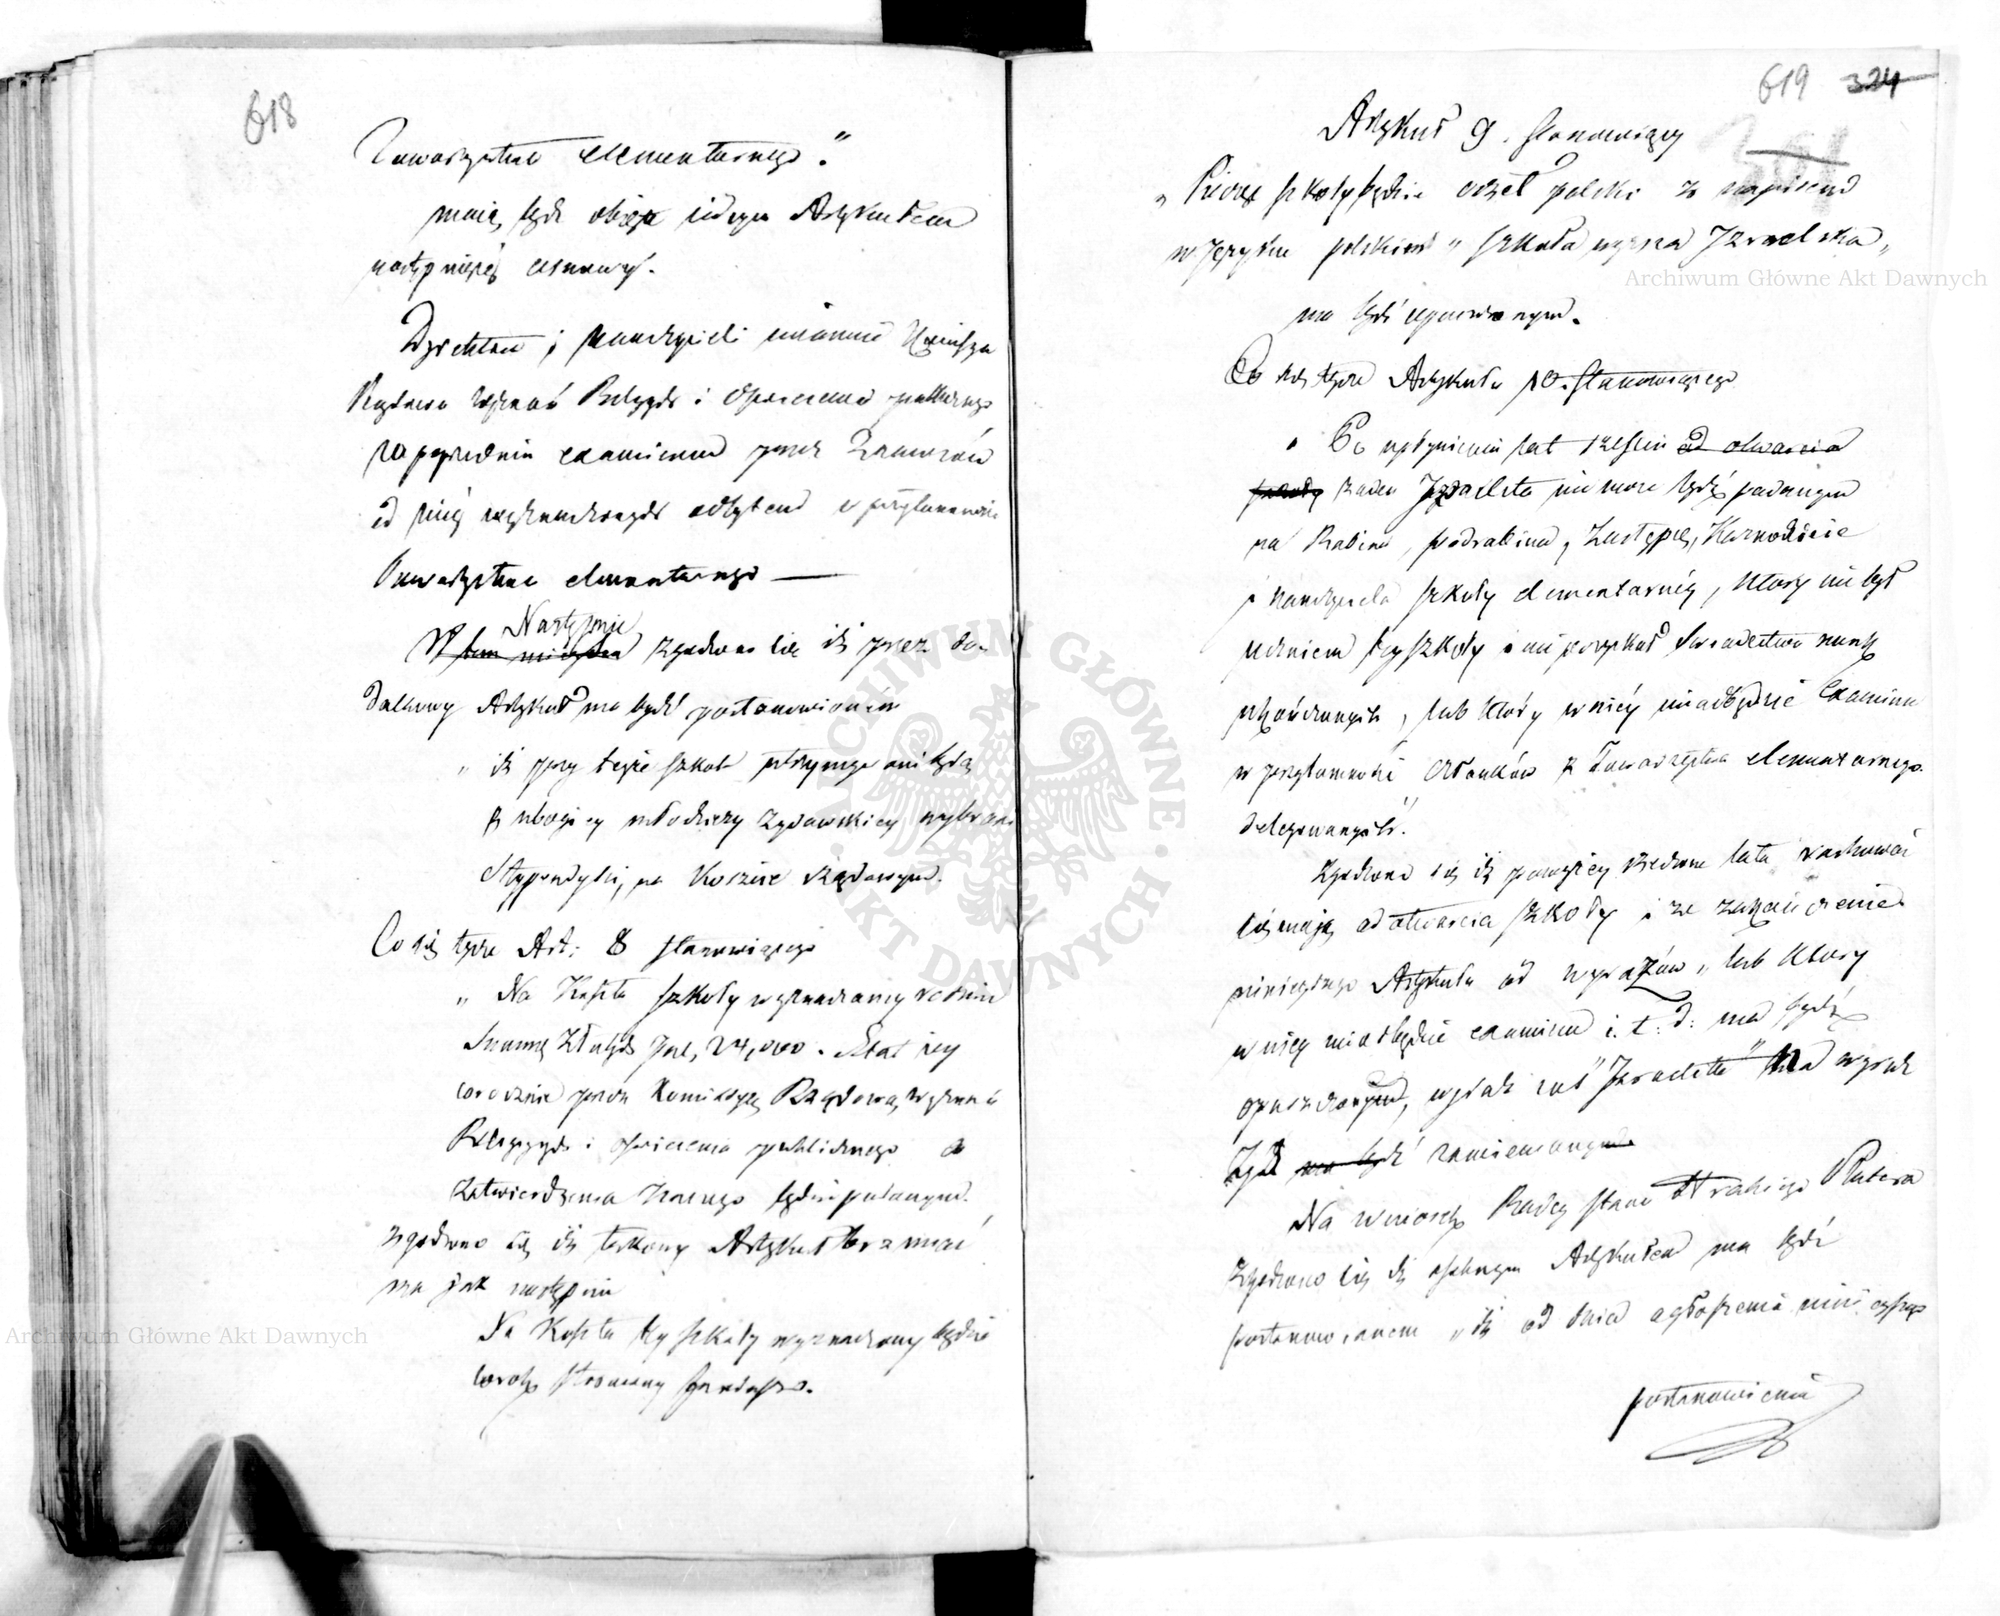 618
Towarzystwa elementarnego."
mają bydź objęte iednym Artykułem
następuiącéj osnowy.
Dyrektora i Nauczycieli mianuie Kommissya
Rządowa Wyznań Religijnych i Oświecenia publicznego
za poprzednim examinem przez Examinatorów
od niéj wyznaczonych odbytem w przytomności
Towarzystwa elementarnego —
Następnie
W tem mieyscu zgodzono się iż przez do-
datkowy Artykuł ma bydź postanowioném
„ iż przy teyże szkole utrzymywani będą
z ubogiey młodzieży żydowskiey wybrani
Stypendyści, na koszcie rządowym.
Co się tycze Art: 8 stanowiącego
„ Na koszta szkoły wyznaczamy rocznie
Summę Złotych Pol. 24,000. Etat iey
corocznie przez Kommissyę Rządową Wyznań
Religijnych i Oświecenia publicznego do
zatwierdzenia Naszego będzie podanym.
zgodzono się iż takowy Artykuł brzmieć
ma jak następuie
Na Koszta tey szkoły wyznaczony będzie
corok stosowny fundusz.
619 324
Artykuł 9. stanowiący
„ Pieczęć szkoły będzie orzeł polski z napisem
w języku polskim „ szkoła wyższa Izraelska „
ma bydź opuszczonym.
Co się tycze Artykułu 10. stanowiącego
„ Po upłynieniu lat sześciu od otwarcia
szkoły żaden Izraelita nie może bydź podanym
na Rabina, podrabina, Zastępcę, Kaznodzieię
i nauczyciela szkoły elementarnéy, który nie był
uczniem tey szkoły i nie pozyskał świadectwa nauk
ukończonych, lub który w niéy nie odbędzie Examinu
w przytomności członków z Towarzystwa elementarnego
delegowanych.
Zgodzono się iż powyższy sześć lat rachować
się mają od otwarcia szkoły i że zakończenie
ninieyszego Artykułu od wyrazów „ lub który
w niéy nie odbędzie examinu i. t. d: ma bydź
opuszczonym, wyraz zaś "Izraelita" na wyraz
żyd ma bydź zamienionym
Na wniosek Radcy Stanu Hrabiego Platera
zgodzono się iż osobnym Artykułem ma bydź
postanowionem „ iż od dnia ogłoszenia ninieyszego
postanowienia